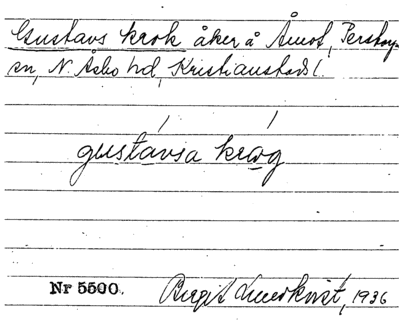 Gustavs krok åker å Åmot, Perstorp
sn, N. Åsbo hd, Kristianstads l.
gustávsa kråg
Nr 5500. Birgit Lundkvist, 1936